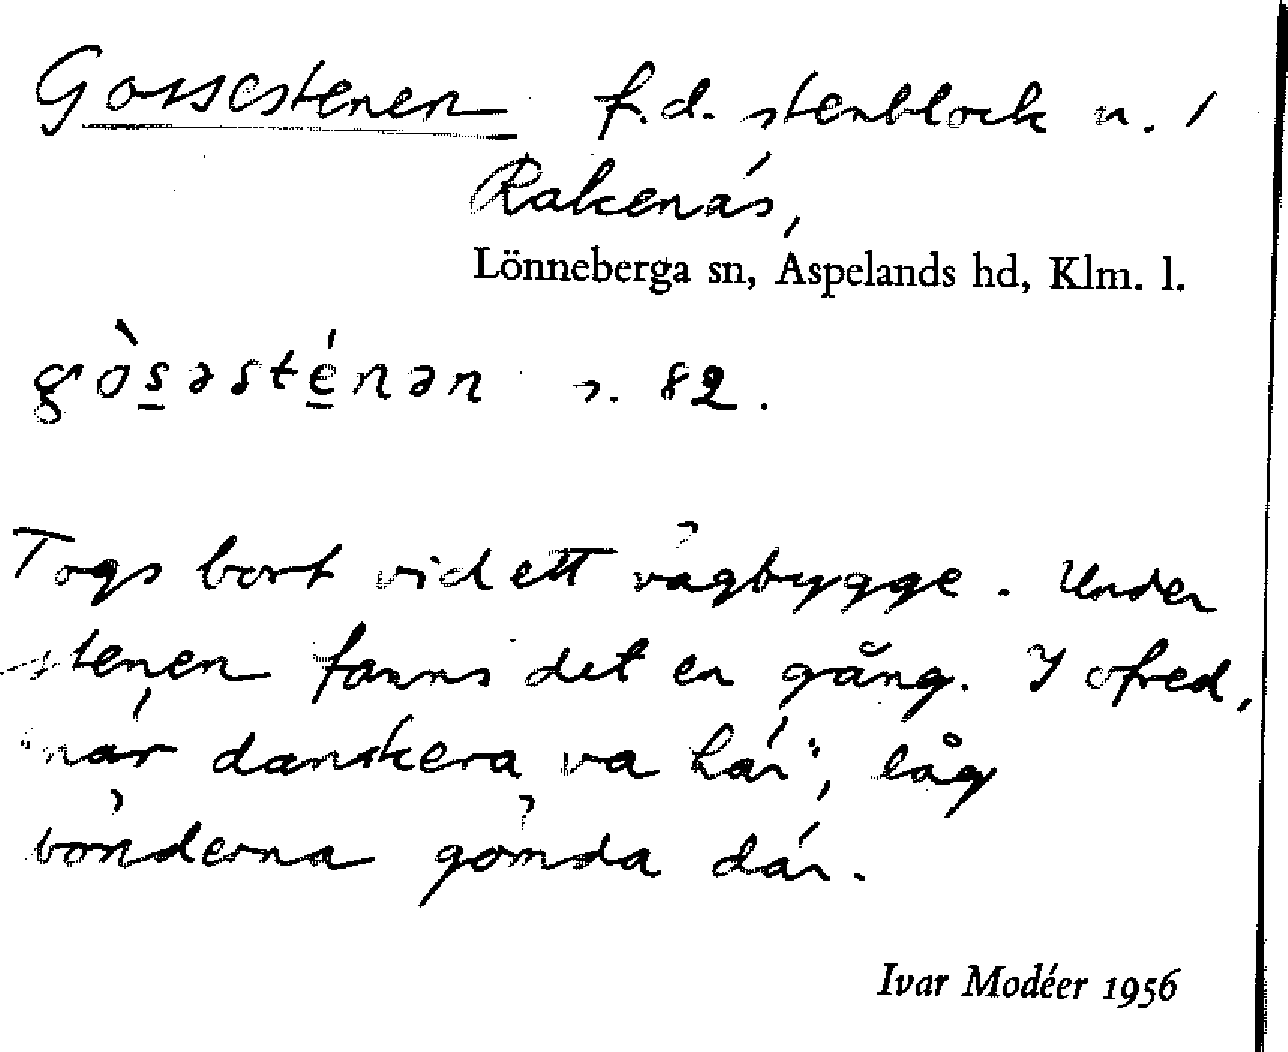 Gossestenen f.d. stenblock n. /
Rakenäs,
Lönneberga sn, Aspelands hd, Klm. l.
gòs̱əsté̱nən s. 82.
Togs bort vid ett vägbygge. Under
stenen fanns det en gång. I ofred,
"när danskera va här", låg
bönderna gömda där.
Ivar Modéer 1956